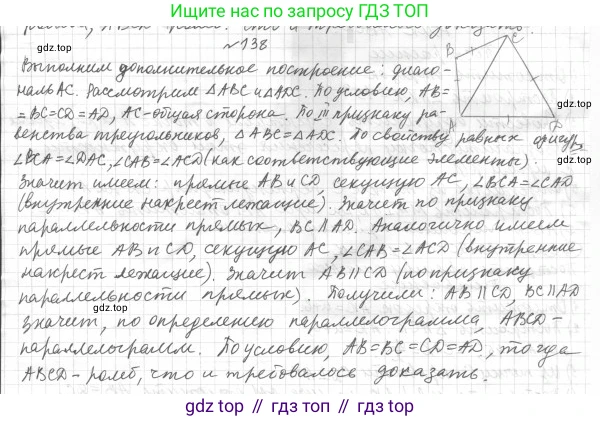 Ищите нас по запросу ГДЗ ТОП
gdz.top
№138
gdz.top
B
C
A
D
Выполним дополнительное построение: диаго-
наль AC. Рассмотрим △ABC и △ADC. По условию, AB=
=BC=CD=AD, AC-общая сторона. По III признаку ра-
венства треугольников, △ABC=△ADC. По свойству равных фигур,
∠BCA=∠DAC, ∠CAB=∠ACD (как соответствующие элементы).
Значит имеем: прямые AB и CD, секущую AC, ∠BCA=∠CAD
(внутренние накрест лежащие). Значит по признаку
параллельности прямых, BC∥AD. Аналогично имеем
прямые AB и CD, секущую AC, ∠CAB=∠ACD (внутренние
накрест лежащие). Значит AB∥CD (по признаку
параллельности прямых). Получили: AB∥CD, BC∥AD
значит, по определению параллелограмма, ABCD-
параллелограмм. По условию, AB=BC=CD=AD, тогда
ABCD-ромб, что и требовалось доказать.
gdz.top
gdz.top
gdz.top // гдз.топ // gdz.top